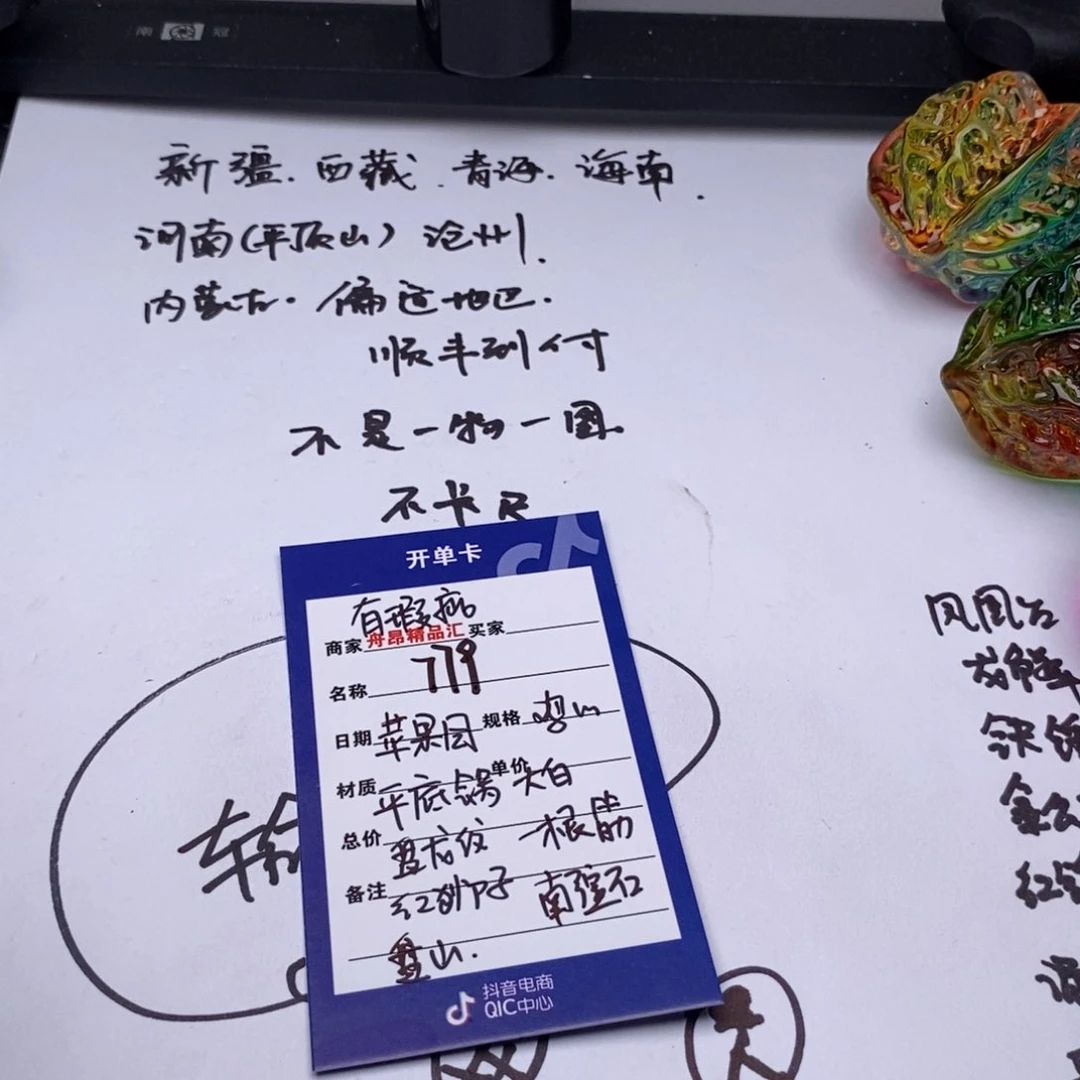 南 冠
新疆.西藏.青海.海南.
河南(平顶山)沧州.
内蒙古.偏远地巴.
顺丰到付
不是一物一图.
不卡尺
开单卡
有瑕疵
商家 舟昂精品汇 买家
名称 779
日期 苹果园 规格
材质 平底锅 单价 大白
总价 盘龙纹 一根筋
备注 红狮子 南疆石
盘山.
抖音电商
QIC中心
输
凤凰台
金
红